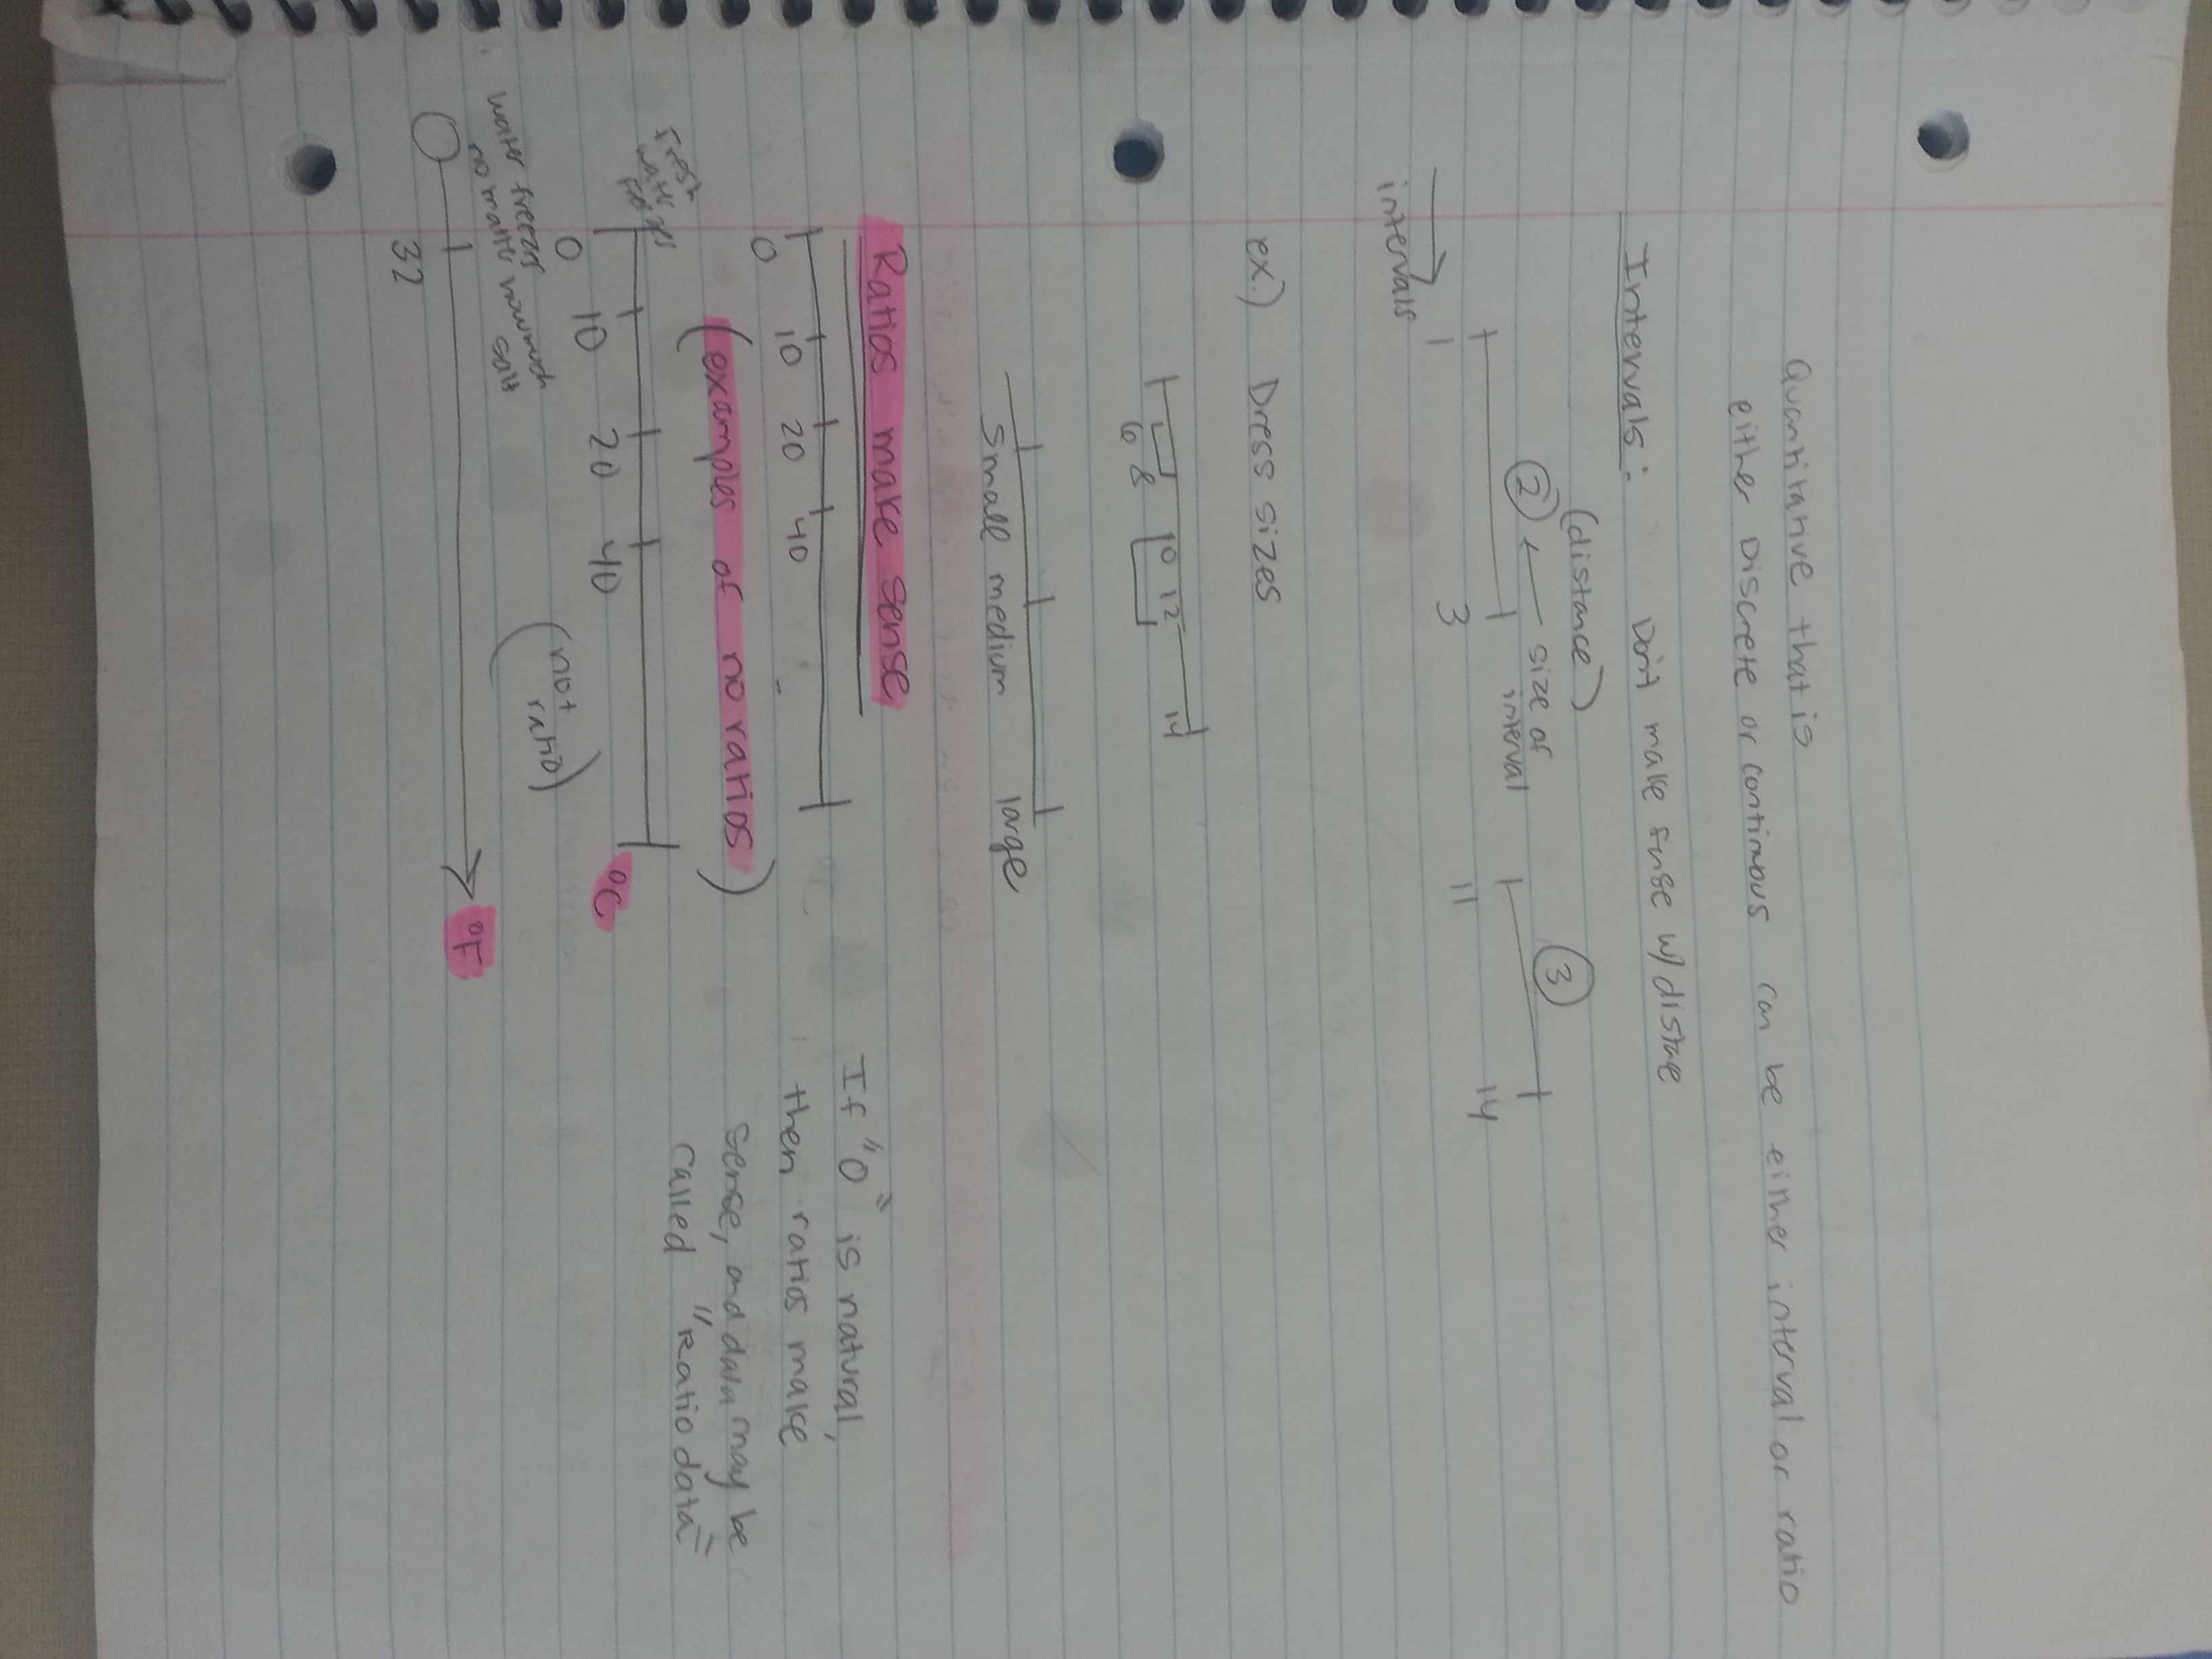 Quantitative that is
either Discrete or continuous can be either interval or ratio
Intervals: Don't make sense w/ distace
(distance)
2 ← size of interval
3
1 3 11 14
intervals
ex.) Dress sizes
6 8 10 12 14
small medium large
Ratios make sense
0 10 20 40
If "0" is natural,
then ratios make
sense, and data may be
called "Ratio data"
(examples of no ratios)
Fresh
water
freezes
0 10 20 40 °C
(not
ratio)
water freezes
no matter how much
salt
32 °F